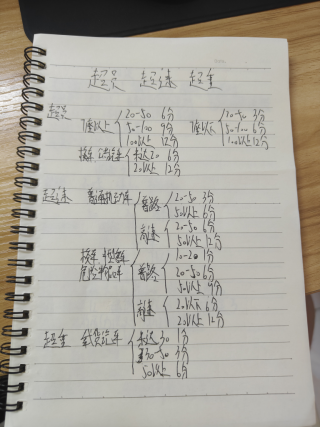 超员 超速 超重
超员 7座以上 20-50 6分 7座以下 20-50 3分
50-100 9分 50-100 6分
100以上 12分 100以上 12分
校车 公安客车 未达20 6分
20以上 12分
超速 普通机动车 普路 20-50 3分
50以上 6分
高速 20-50 6分
50以上 12分
校车 中型客车 危险物品车 普路 10-20 1分
20-50 6分
50以上 9分
高速 20以下 6分
20以上 12分
超重 载货汽车 未达30 1分
30-50 3分
50以上 6分